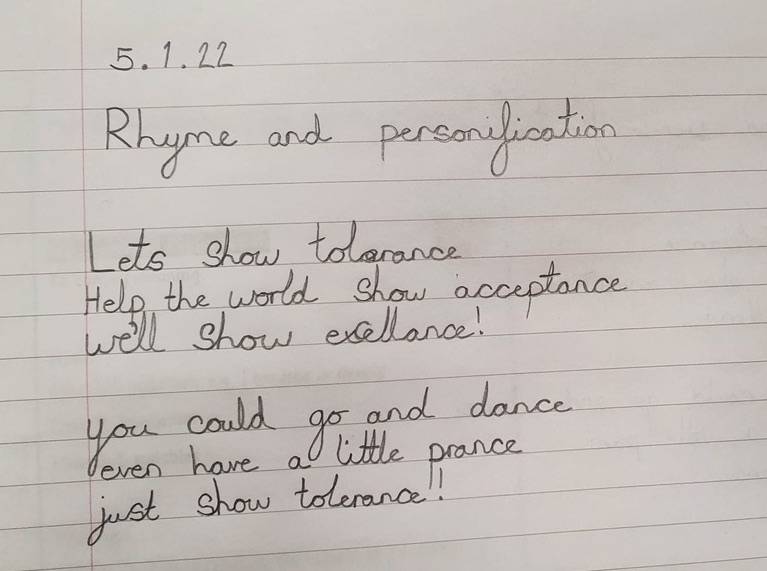 5.1.22
Rhyme and personification
Lets show tolarance
Help the world show acceptance
we'll show exellance!
you could go and dance
even have a little prance
just show tolerance!!